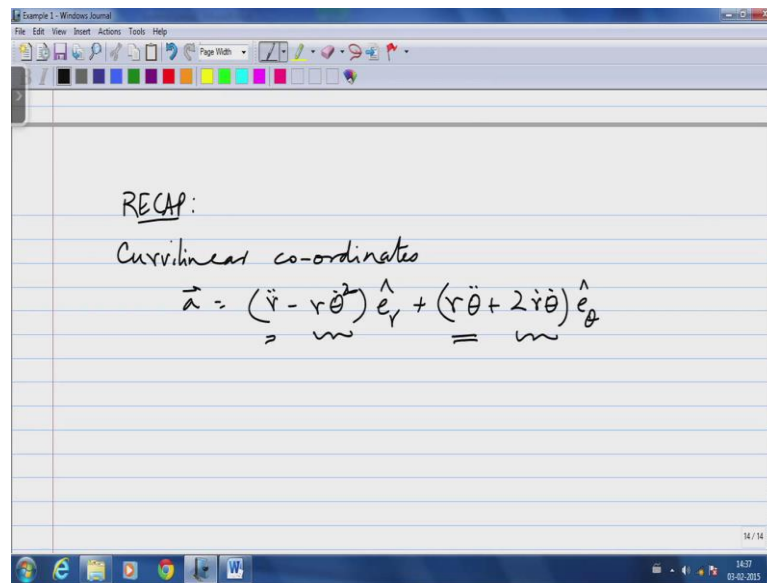 Example 1 - Windows Journal
File Edit View Insert Actions Tools Help
Page Width
B I
RECAP:
Curvilinear co-ordinates
a⃗ = (r̈ - rθ̇²) ê_r + (rθ̈ + 2ṙθ̇) ê_θ
14 / 14
14:37
03-02-2015